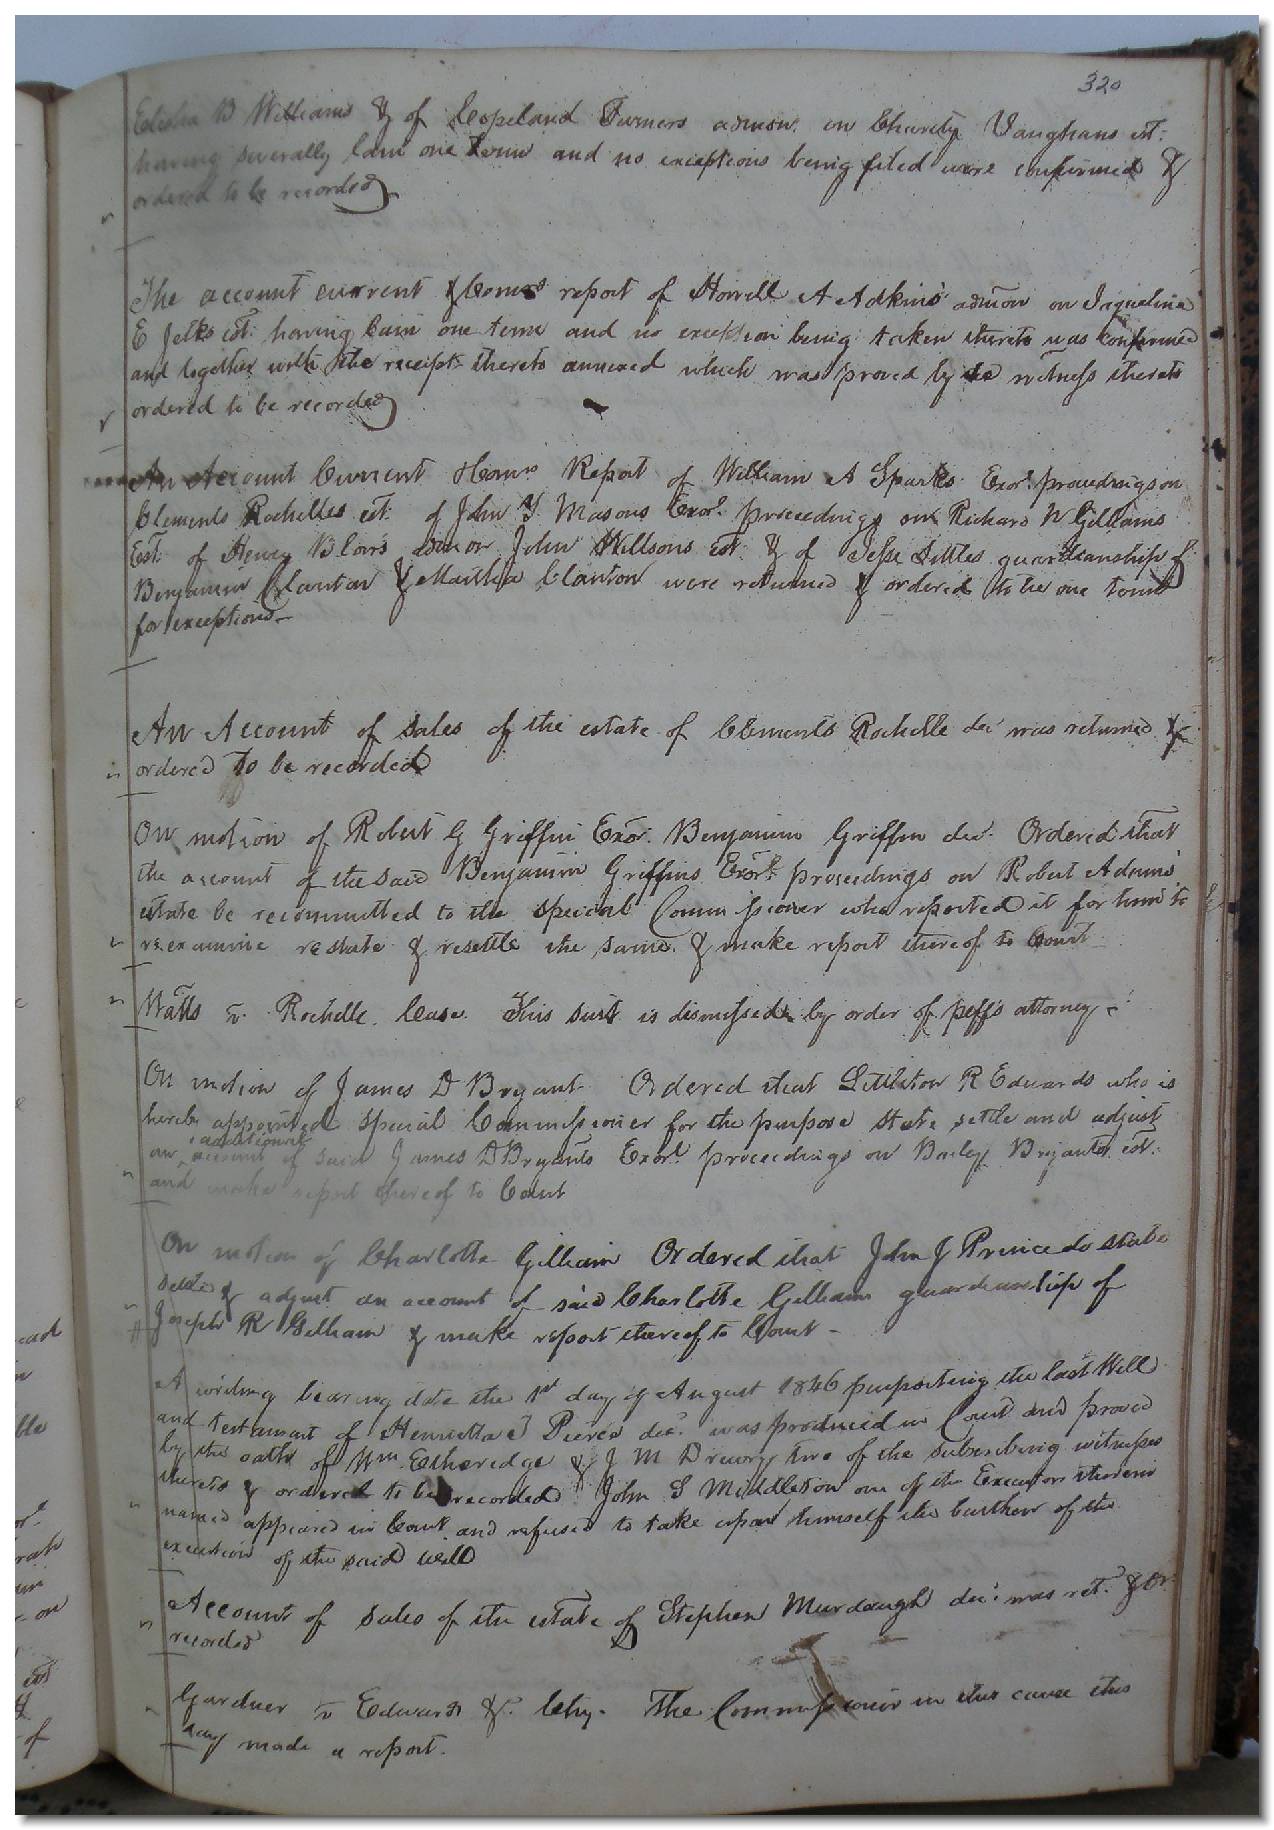 320
Elisha B Williams & of Copeland Turners admon. on Charity Vaughans est:
having severally lain one Term and no exceptions being filed were confirmed &
ordered to be recorded
The account current & Comrs report of Howell A Adkins admon on Jaquelina
E Jelks est: having lain one term and no exception being taken thereto was confirmed
and together with the receipt thereto annexed which was proved by the witness thereto
ordered to be recorded
An Account Current & Comrs Report of William A Sparks Exor. proceedings on
Clements Rochelles est. of John Y Masons Exorl proceedings on Richard W Gilliams
Est. of Henry Blows admon John Willsons est & of Jesse Littles guardianship of
Benjamin Clanton & Martha Clanton were returned & ordered to lie one term
for exceptions
An Account of sales of the estate of Clements Rochelle dec was returned &
ordered to be recorded
On motion of Robert G Griffin Exor. Benjamin Griffin dec. Ordered that
the account of the said Benjamin Griffins Exorl proceedings on Robert Adams
estate be recommitted to the special Commissioner who reported it for him to
reexamine restate & resettle the same & make report thereof to Court
Watts v. Rochelle. Case. This suit is dismissed by order of plffs attorney
On motion of James D Bryant Ordered that Littleton R Edwards who is
hereby appointed special Commissioner for the purpose state, settle and adjust
additional
an account of said James D Bryants Exorl proceedings on Bailey Bryants est.
and make report thereof to Court
On motion of Charlotte Gilliam Ordered that John J Prince do state
settle & adjust an account of said Charlotte Gilliams guardianship of
Joseph R Gilliam & make report thereof to Court
A writing bearing date the 1st day of August 1846 purporting the last Will
and testament of Henrietta Pierce dec. was produced in Court and proved
by the oaths of Wm Etheredge & J M Drewry two of the subscribing witnesses
thereto & ordered to be recorded John S Middleton one of the Executors therein
named appeared in Court and refused to take upon himself the burthen of the
execution of the said will
Account of sales of the estate of Stephen Murdaugh dec. was ret. & or.
recorded
Gardner v Edwards &c. Chy. The Commissioner in this cause this
day made a report.